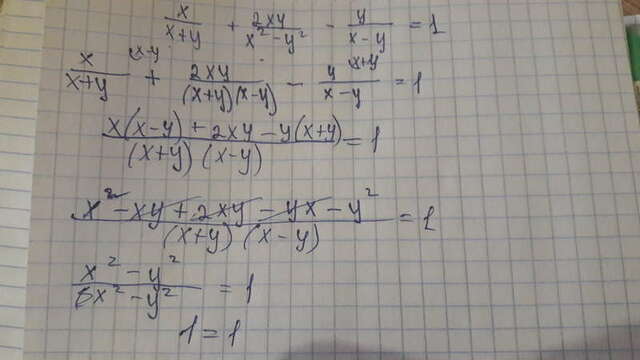 x/(x+y) + 2xy/(x²-y²) - y/(x-y) = 1
x/(x+y) + 2xy/((x+y)(x-y)) - y/(x-y) = 1
(x(x-y) + 2xy - y(x+y))/((x+y)(x-y)) = 1
(x² - xy + 2xy - yx - y²)/((x+y)(x-y)) = 1
x² - y² = 1
1 = 1